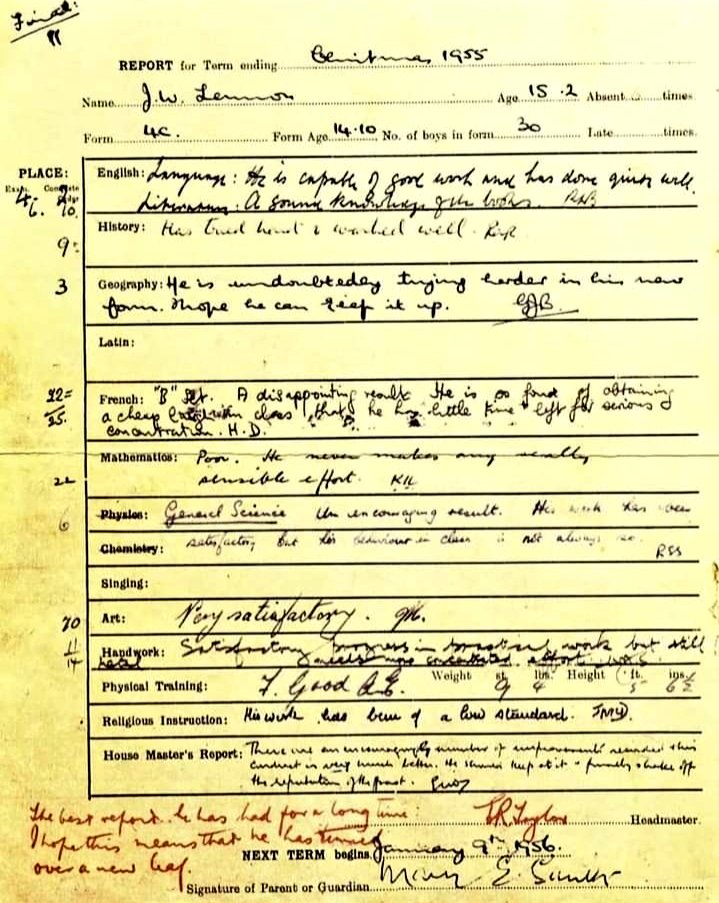 Final:
REPORT for Term ending Christmas 1955
Name J.W. Lennon Age 15.2 Absent times
Form 4C. Form Age 14.10 No. of boys in form 30 Late times.
PLACE:
English: Language: He is capable of good work and has done quite well.
Literature: A sound knowledge of the books. RHB
9= History: Has tried hard & worked well.
3 Geography: He is undoubtedly trying harder in his new
form. I hope he can keep it up. GJB.
Latin:
22= French: "B" Set. A disappointing result. He is so fond of obtaining
25. a cheap in class that he has little time left for serious
concentration. H.D.
Mathematics: Poor. He never makes any really
22 sensible effort.
6 Physics: General Science An encouraging result. His work has been
Chemistry: satisfactory but his behaviour in class is not always so. RSS
Singing:
Art: Very satisfactory.
11/14 Handwork: Satisfactory progress in practical work but still
Metal needs more concentrated effort.
Physical Training: F. Good Weight 9 st. 4 lbs. Height 5 ft. 6½ ins.
Religious Instruction: His work has been of a low standard.
House Master's Report: There are an encouraging number of improvements recorded & his
conduct is very much better. He should keep at it & finally shake off
the reputation of the past.
The best report he has had for a long time. Headmaster.
I hope this means that he has turned
over a new leaf.
NEXT TERM begins January 9th, 1956.
Signature of Parent or Guardian Mary E. Smith